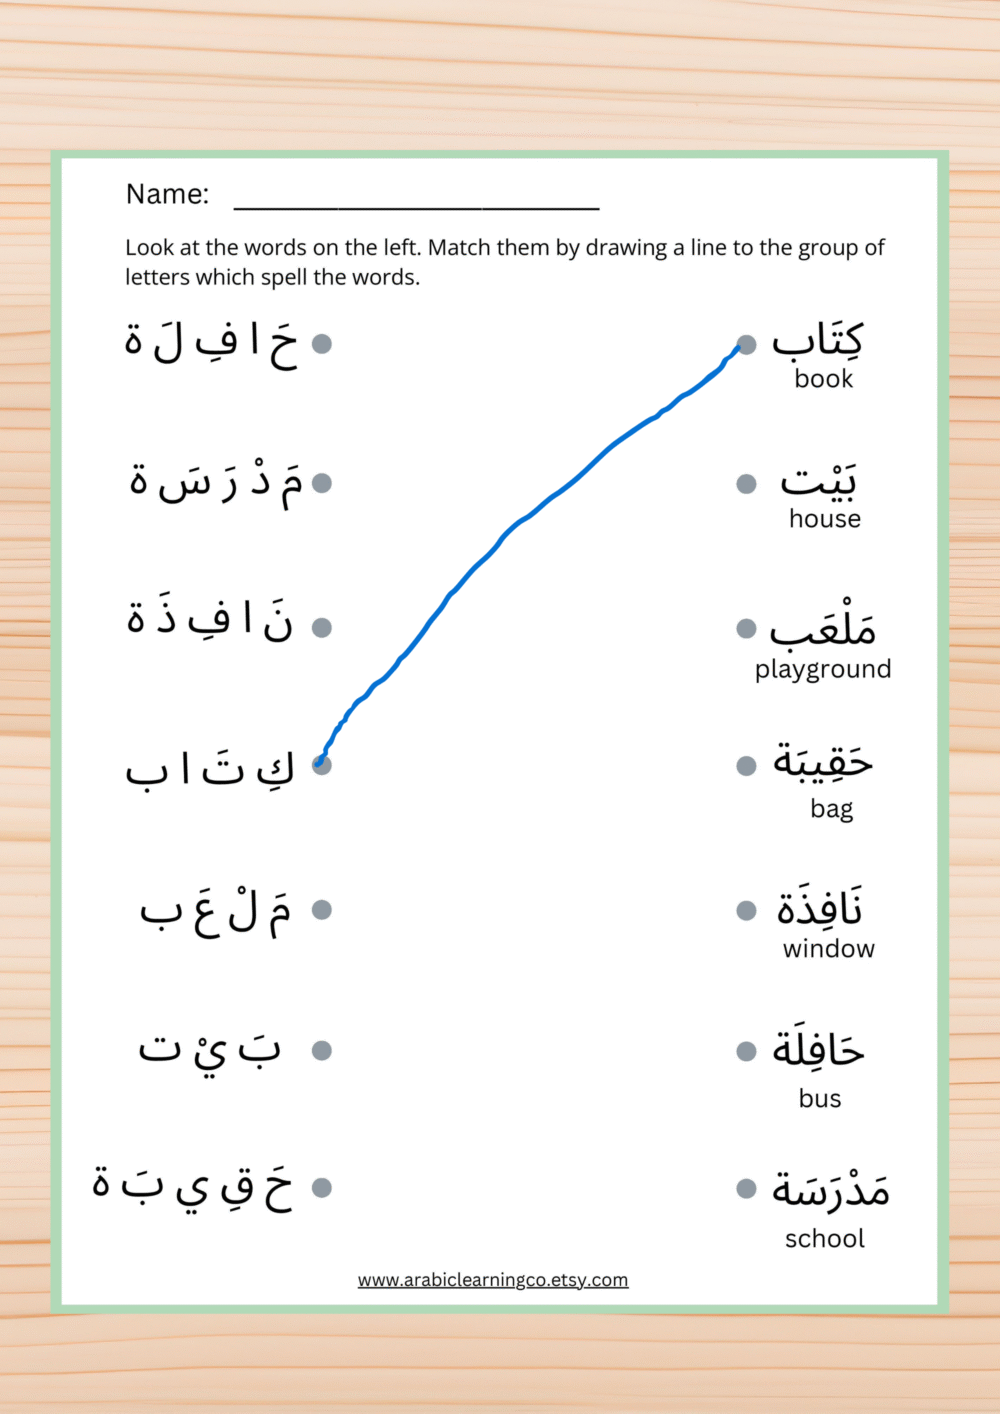 Name:
Look at the words on the left. Match them by drawing a line to the group of
letters which spell the words.
كِتَاب
book
بَيْت
house
مَلْعَب
playground
حَقِيبَة
bag
نَافِذَة
window
حَافِلَة
bus
مَدْرَسَة
school
حَ ا فِ لَ ة
مَ دْ رَ سَ ة
نَ ا فِ ذَ ة
كِ تَ ا ب
مَ لْ عَ ب
بَ يْ ت
حَ قِ ي بَ ة
www.arabiclearningco.etsy.com